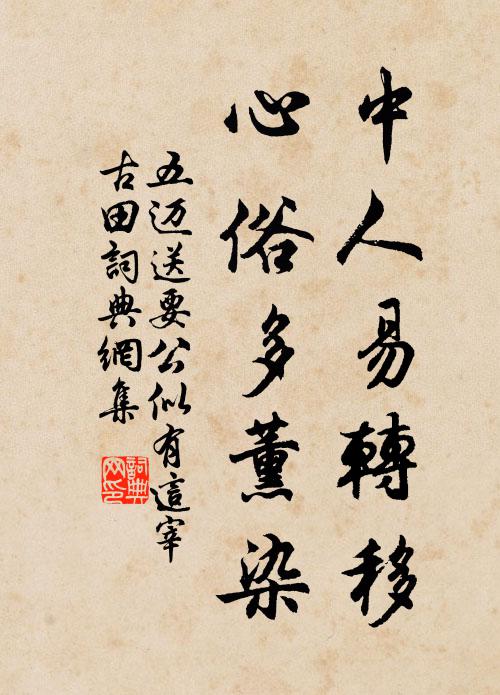 中人易轉移
心俗多薰染
五迈送要公似有這宰
古田詞典網集
詞典
网印